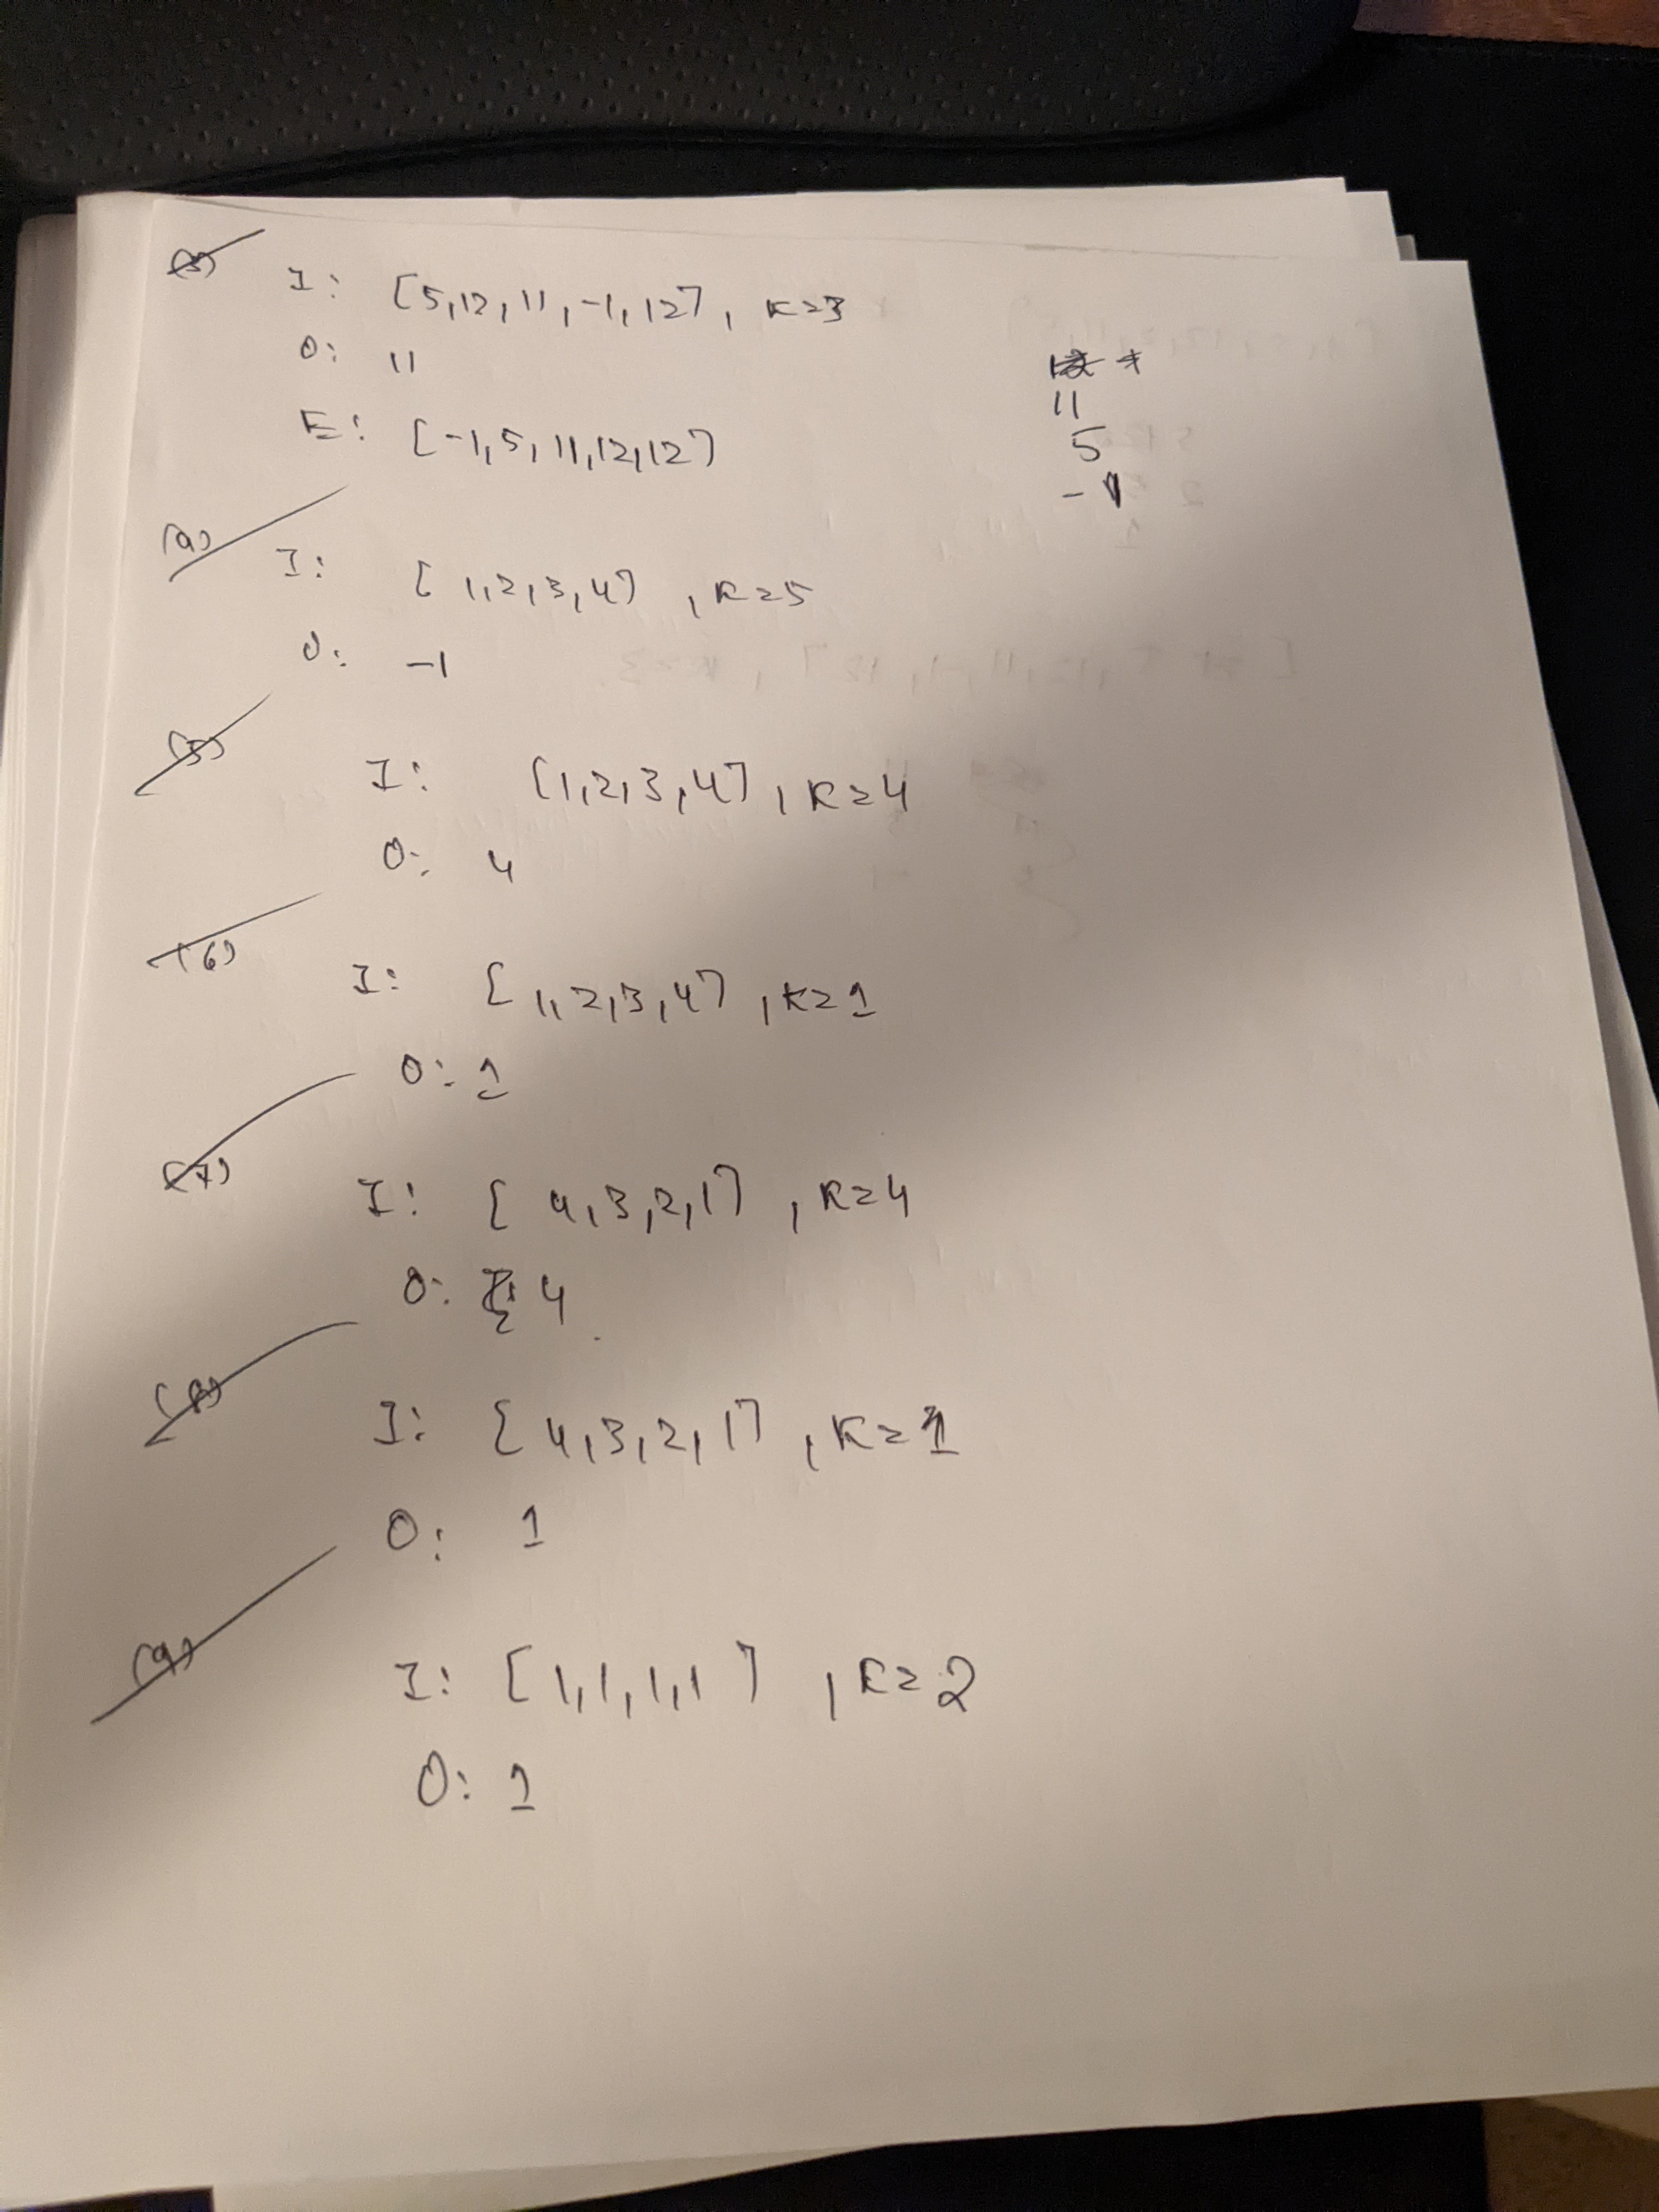 (3)
I: [5,12,11,-1,12], K=3
O: 11
E: [-1,5,11,12,12]
11
5
-1
(4)
I: [1,2,3,4], K=5
O: -1
(5)
I: [1,2,3,4], K=4
O: 4
(6)
I: [1,2,3,4], K=1
O: 1
(7)
I: [4,3,2,1], K=4
O: 4
(8)
I: [4,3,2,1], K=1
O: 1
(9)
I: [1,1,1,1], K=2
O: 1